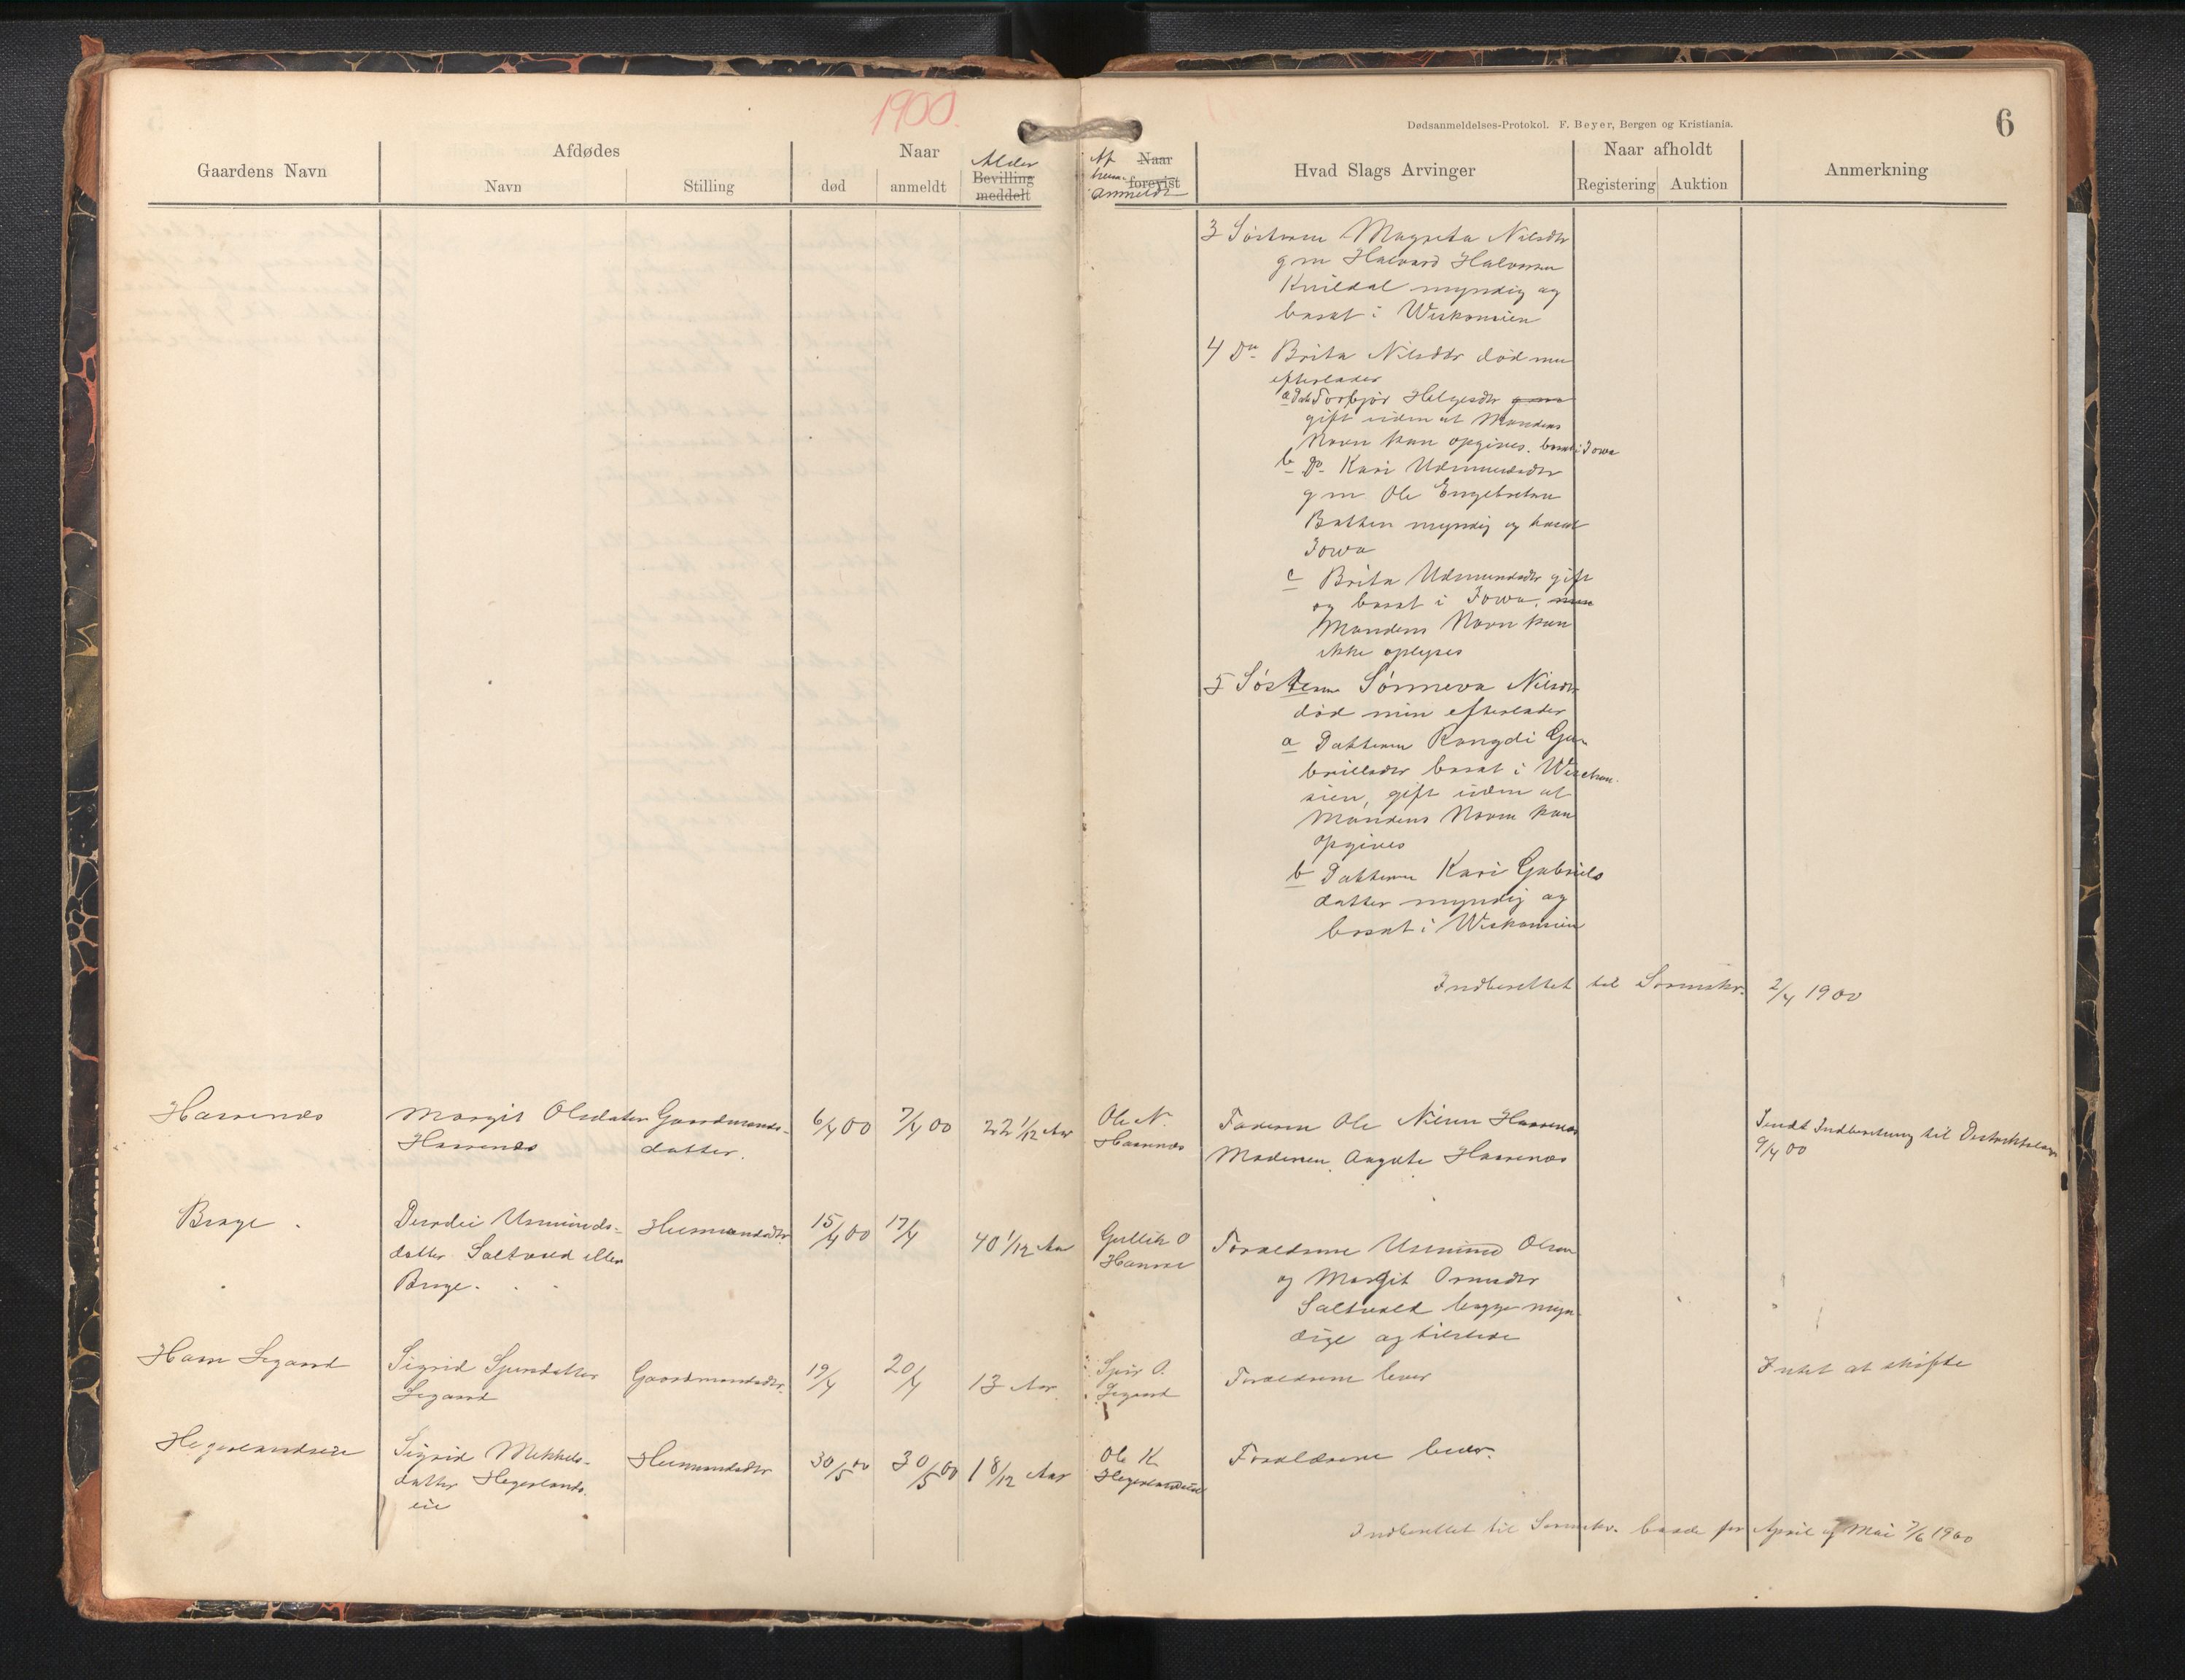 1900.
Dødsanmeldelses-Protokol. F. Beyer, Bergen og Kristiania.
6
Gaardens Navn
Afdødes
Navn
Stilling
Naar
død
anmeldt
Alder
Bevilling
meddelt
Af
hvem
anmeldt
Naar
forevist
Hvad Slags Arvinger
Naar afholdt
Registering
Auktion
Anmerkning
3 Søsteren Magreta Nilsdtr
g m Halvard Halvorsen
Kvildal myndig og
bosat i Wiskonsien
4 Do Brita Nilsddr død men
efterlader
a Dat Torbjør Helgesdtr g m
gift uden at Mandens
Navn kan opgives. bosat i Iowa
b Do Kari Udmundsdtr
g m Ole Engebretsen
Bakken myndig og bosat
Iowa
c Brita Udmundsdtr gift
og bosat i Iowa, men
Mandens Navn kan
ikke oplyses
5 Søsteren Sønneva Nilsdtr
død men efterlader
a Datteren Rangdi Ga
brielsdtr bosat i Wisckon
sien, gift uden at
Mandens Navn kan
opgives
b Datteren Kari Gabriels
datter myndig og
bosat i Wiskonsien
Indberettet til Sorenskr. 2/4 1900
Haarenæs
Margit Olsdatter
Haarenæs
Gaardmands-
datter.
6/4 00
7/4 00
22 1/12 Aar
Ole N.
Haarenæs
Faderen Ole Nilsen Haarenæs
Moderen Aagate Haarenæs
Sendt Indberetning til Distriktslæge
9/4 00
Brage.
Durdei Usmunds-
datter Saltvold eller
Brage.
Husmandsdtr.
15/4 00
17/4
40 1/12 Aar
Gullik O
Forældrene Usmund Olsen
og Margit Ormsdtr
Saltvold begge myn-
dige og tilstede
Sigrid Sjursdatter
Gaardmandsdtr.
19/4
20/4
13 Aar
Forældrene lever
Intet at skifte
Hegerlandseie
Sigrid Mikkels-
datter Hegerlands-
eie
Husmandsdtr
30/5 00
30/5 00
1 8/12 Aar
Ole K.
Hegerlandseie
Forældrene lever.
Indberettet til Sorenskr. baade for April og Mai 7/6 1900